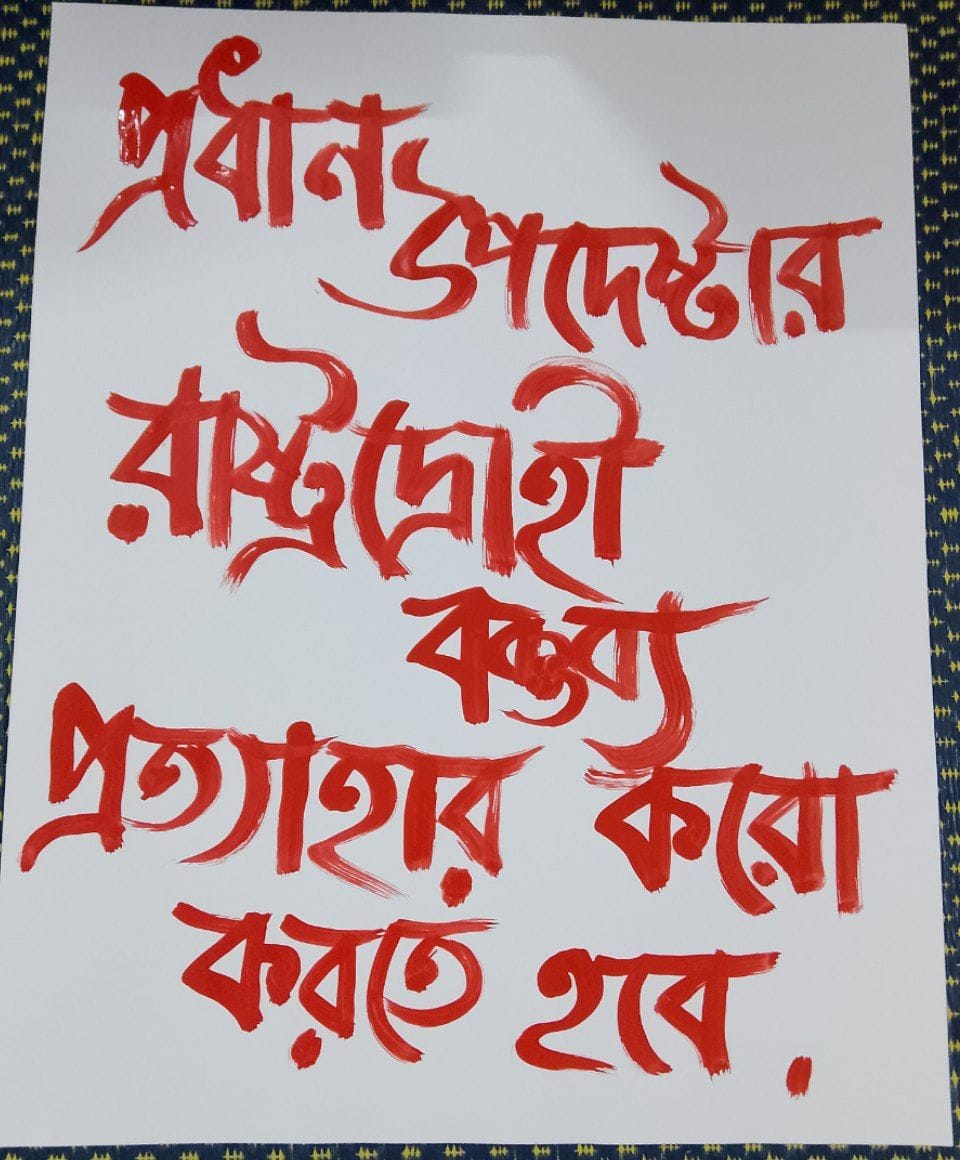 প্রধান
উপদেষ্টার
রাষ্ট্রদ্রোহী
বক্তব্য
প্রত্যাহার করো
করতে হবে.